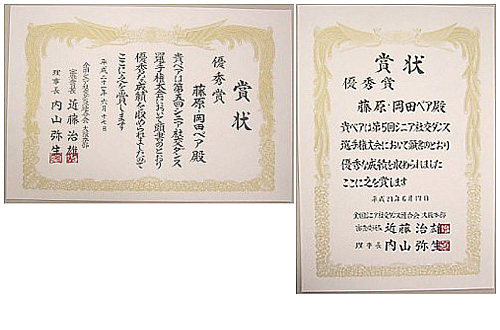 賞状
優秀賞
藤原・岡田ペア殿
貴ペアは第五回シニア社交ダンス
選手権大会において頭書のとおり
優秀な成績を収められましたので
ここに之を賞します
平成二十一年六月十七日
全国シニア社交ダンス連合会 大阪本部
近藤治雄
理事長 内山弥生
賞状
優秀賞
藤原・岡田ペア殿
貴ペアは第5回シニア社交ダンス
選手権大会において頭書のとおり
優秀な成績を収められました
ここに之を賞します
平成21年6月17日
全国シニア社交ダンス連合会 大阪本部
近藤治雄
理事長 内山弥生